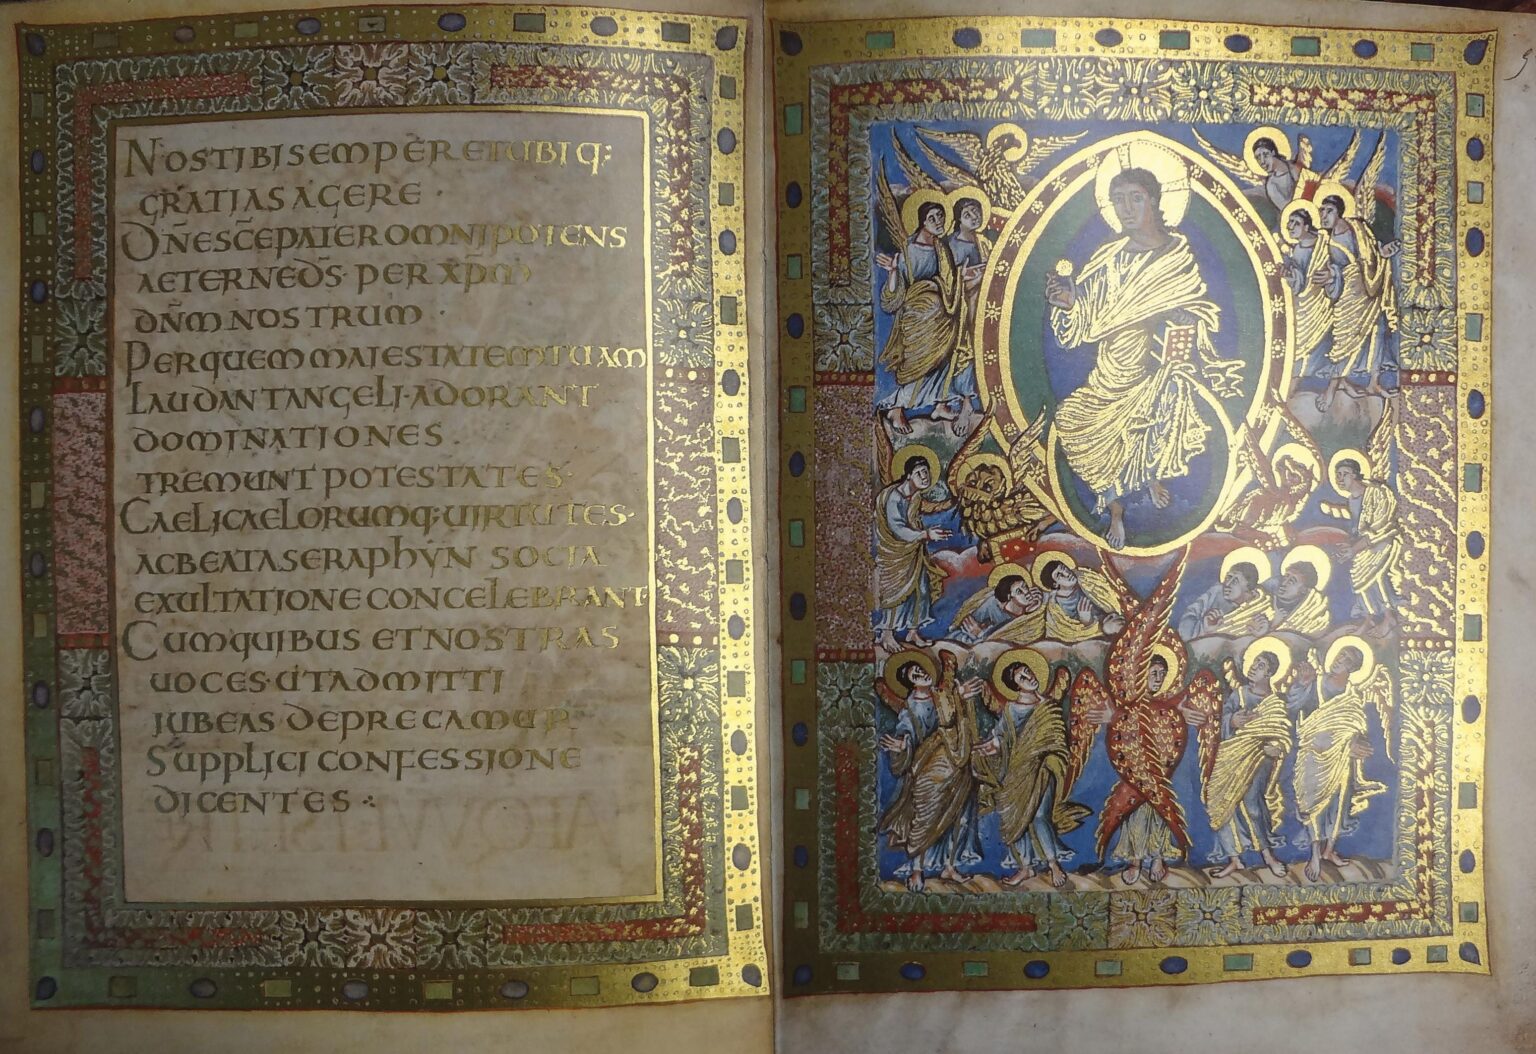 NOS TIBI SEMPER ET UBIQ;
GRATIAS AGERE ·
DN̄E SC̄E PATER OMNIPOTENS
AETERNE DS̄ · PER XP̄M
DN̄M NOSTRUM ·
PER QUEM MAIESTATEM TUAM
LAUDANT ANGELI · ADORANT
DOMINATIONES ·
TREMUNT POTESTATES ·
CAELI CAELORUMQ; UIRTUTES ·
AC BEATA SERAPHYN SOCIA
EXULTATIONE CONCELEBRANT
CUM QUIBUS ET NOSTRAS
UOCES · UT ADMITTI
IUBEAS DEPRECAMUR
SUPPLICI CONFESSIONE
DICENTES ·: